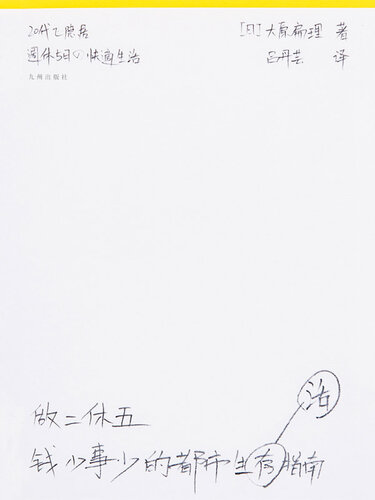 20代で隠居
週休5日の快適生活
九州出版社
[日] 大原扁理 著
吕丹芸 译
做二休五
活
钱少事少的都市生存指南